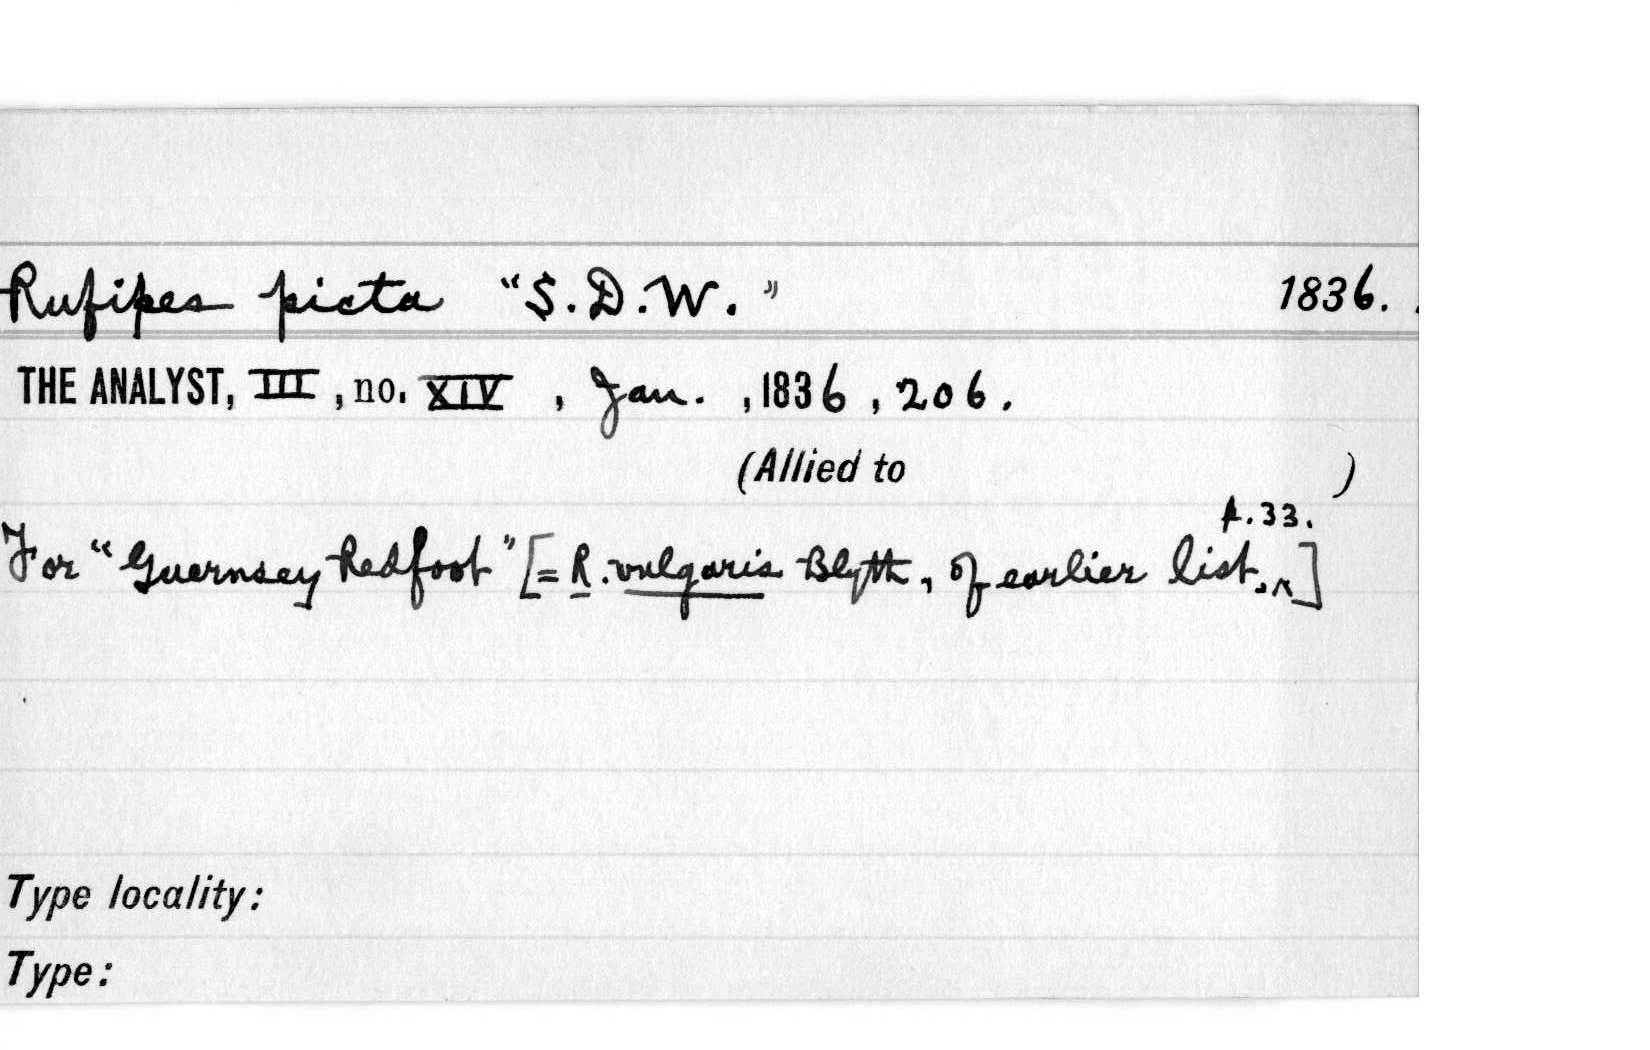 Rufipes picta "S.D.W." 1836.
THE ANALYST, III, no. XIV, Jan., 1836, 206.
(Allied to )
p.33.
For "Guernsey Redfoot" [= R. vulgaris Blyth, of earlier list,^]
Type locality:
Type: